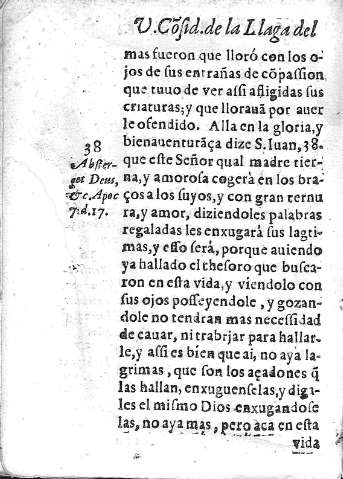 V. Cõsid. de la Llaga del
mas fueron que lloró con los o-
jos de sus entrañas de cõpassion
que tuuo de ver assi afligidas sus
criaturas; y que llorauã por auer
le ofendido. Alla en la gloria, y
bienauenturãça dize S. Iuan, 38.
que este Señor qual madre tier-
na, y amorosa cogerà en los bra-
ços a los suyos, y con gran ternu
ra, y amor, diziendoles palabras
regaladas les enxugarà sus lagri-
mas, y esso serà, porque auiendo
ya hallado el thesoro que busca-
ron en esta vida, y viendolo con
sus ojos posseyendole, y gozan-
dole no tendran mas necessidad
de cauar, ni trabrjar para hallar-
le, y assi es bien que ai, no aya la-
grimas, que son los açadones q̃
las hallan, enxuguenselas, y digi-
les el mismo Dios enxugandose
las, no aya mas, pero aca en esta
vida
38
Abster-
get Deus,
&c. Apoc
7. d. 17.